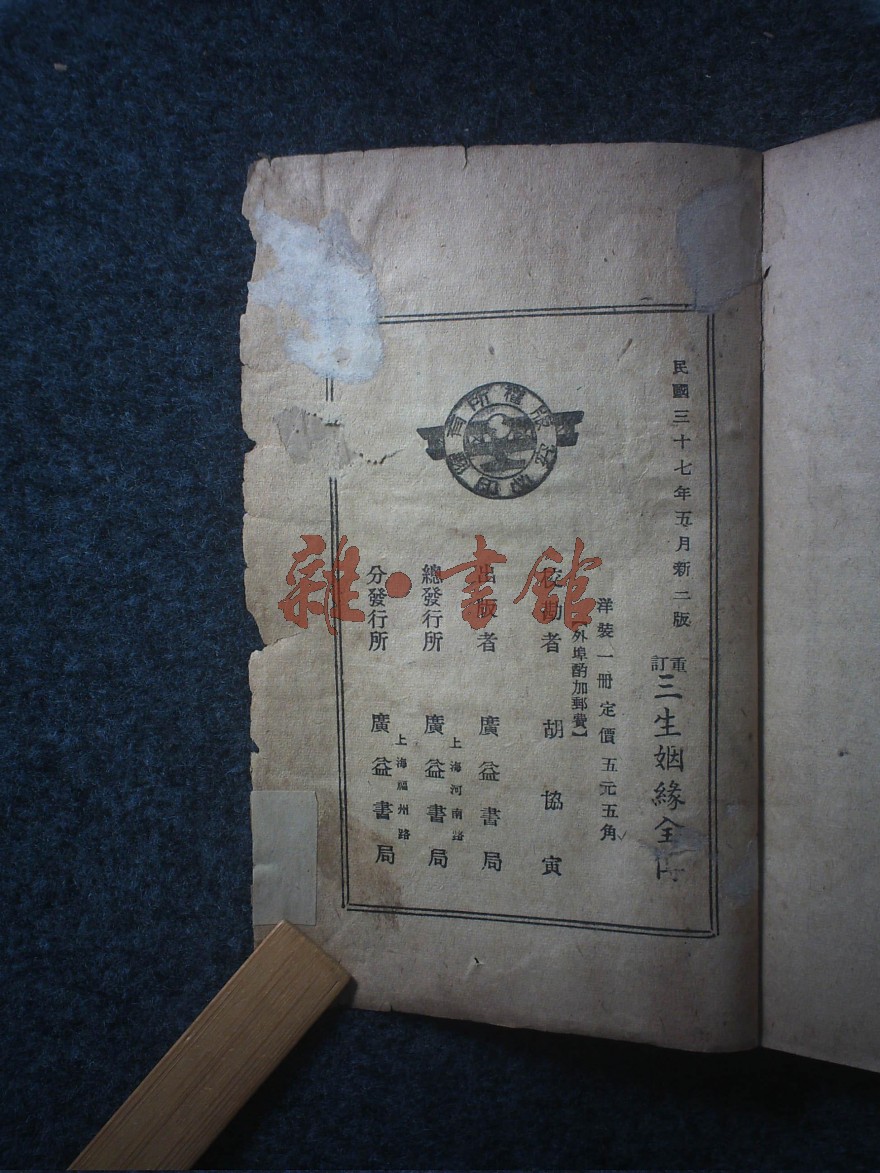 民國三十七年五月新二版
重訂 三生姻緣全
洋裝一册定價五元五角
【外埠酌加郵費】
校勘者 胡協寅
出版者 廣益書局
上海河南路
總發行所 廣益書局
上海福州路
分發行所 廣益書局
版權所有
翻印
雜·書館